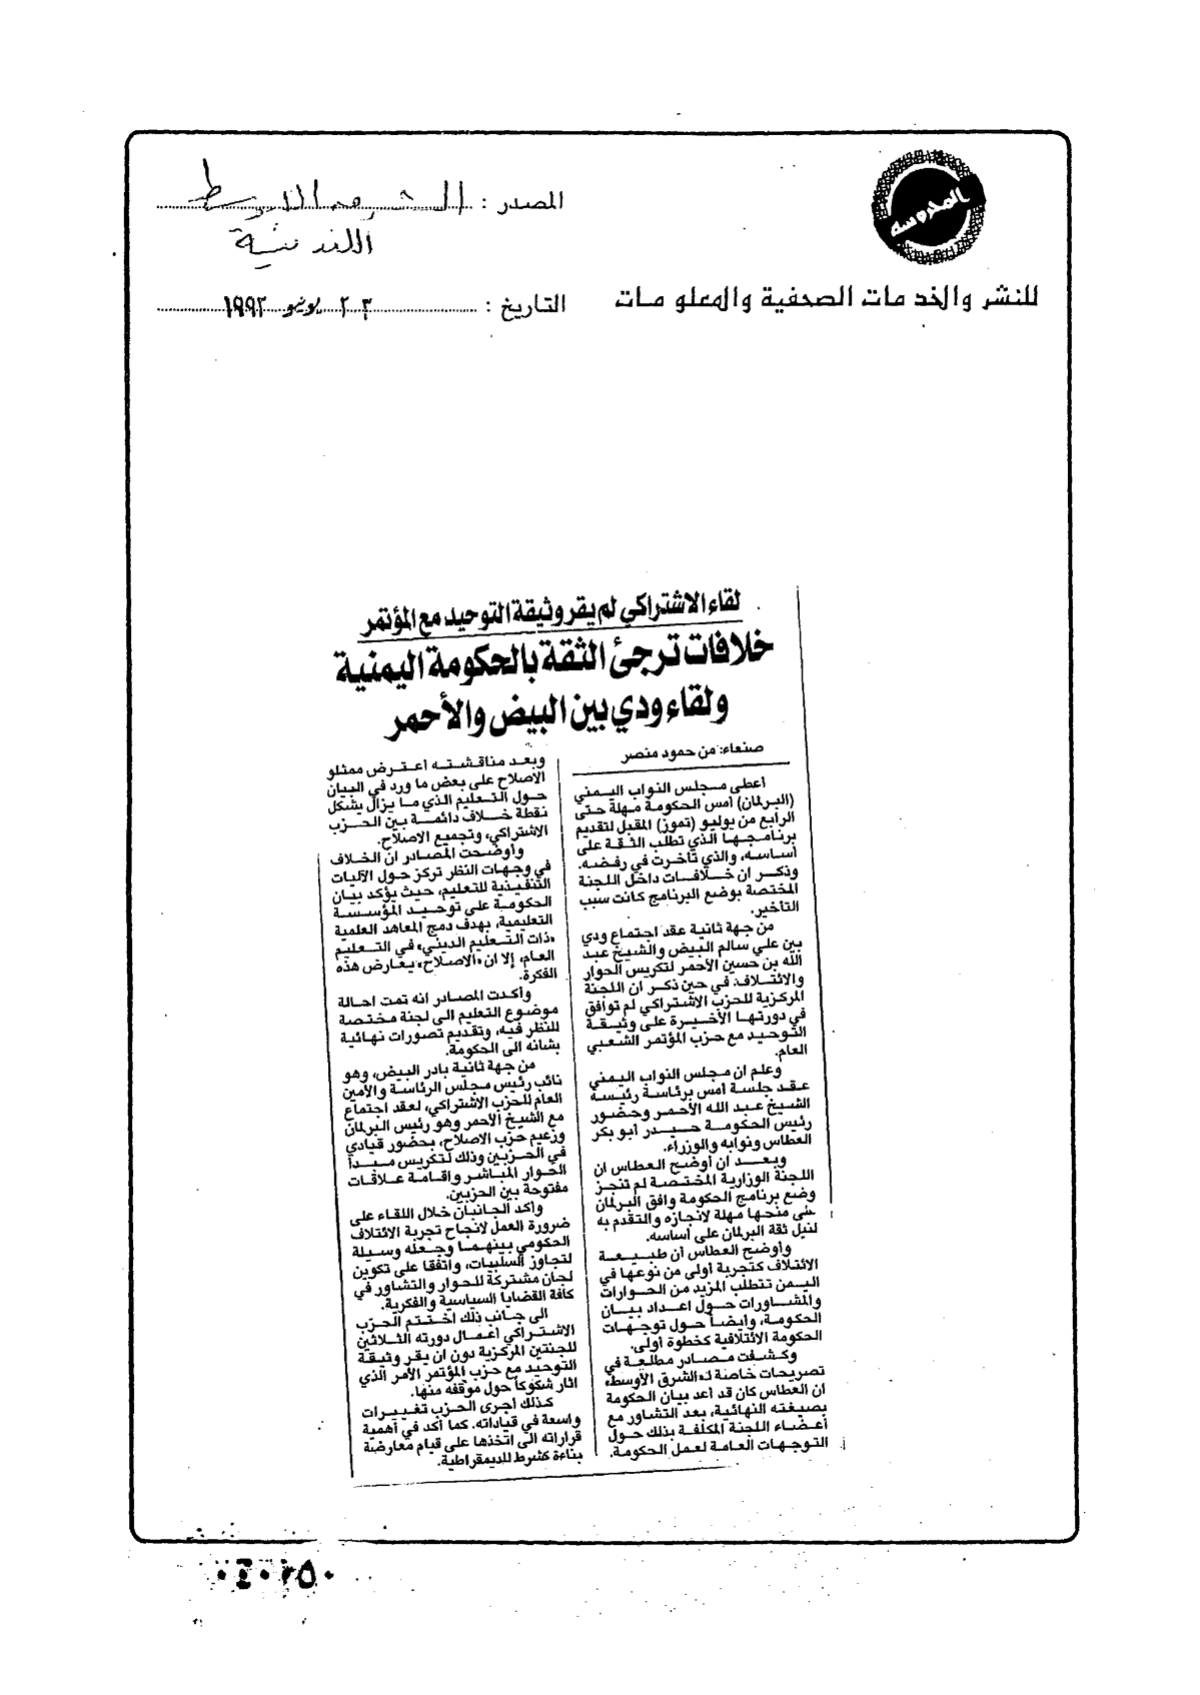 المحروسة
للنشر والخدمات الصحفية والمعلومات
المصدر : الشرق الاوسط
اللندنية
التاريخ : ٢٣ يونيو ١٩٩٣
لقاء الاشتراكي لم يقر وثيقة التوحيد مع المؤتمر
خلافات ترجئ الثقة بالحكومة اليمنية
ولقاء ودي بين البيض والأحمر
صنعاء: من حمود منصر
أعطى مجلس النواب اليمني
(البرلمان) أمس الحكومة مهلة حتى
الرابع من يوليو (تموز) المقبل لتقديم
برنامجها الذي تطلب الثقة على
أساسه، والذي تأخرت في رفضه.
وذكر ان خلافات داخل اللجنة
المختصة بوضع البرنامج كانت سبب
التأخير.
من جهة ثانية عقد اجتماع ودي
بين علي سالم البيض والشيخ عبد
الله بن حسين الأحمر لتكريس الحوار
والائتلاف في حين ذكر ان اللجنة
المركزية للحزب الاشتراكي لم توافق
في دورتها الأخيرة على وثيقة
التوحيد مع حزب المؤتمر الشعبي
العام.
وعلم ان مجلس النواب اليمني
عقد جلسة أمس برئاسة رئيسه
الشيخ عبد الله الأحمر وحضور
رئيس الحكومة حيدر أبو بكر
العطاس ونوابه والوزراء.
وبعد ان أوضح العطاس ان
اللجنة الوزارية المختصة لم تنجز
وضع برنامج الحكومة وافق البرلمان
على منحها مهلة لانجازه والتقدم به
لنيل ثقة البرلمان على أساسه.
وأوضح العطاس أن طبيعة
الائتلاف كتجربة أولى من نوعها في
اليمن تتطلب المزيد من الحوارات
والمشاورات حول اعداد بيان
الحكومة، وأيضاً حول توجهات
الحكومة الائتلافية كخطوة أولى.
وكشفت مصادر مطلعة في
تصريحات خاصة لـ«الشرق الأوسط»
ان العطاس كان قد اعد بيان الحكومة
بصيغته النهائية، بعد التشاور مع
أعضاء اللجنة المكلفة بذلك حول
التوجهات العامة لعمل الحكومة.
وبعد مناقشته اعترض ممثلو
الاصلاح على بعض ما ورد في البيان
حول التعليم الذي ما يزال يشكل
نقطة خلاف دائمة بين الحزب
الاشتراكي، وتجميع الاصلاح.
وأوضحت المصادر ان الخلاف
في وجهات النظر تركز حول الآليات
التنفيذية للتعليم، حيث يؤكد بيان
الحكومة على توحيد المؤسسة
التعليمية، بهدف دمج المعاهد العلمية
«ذات التعليم الديني» في التعليم
العام، إلا ان «الاصلاح» يعارض هذه
الفكرة.
وأكدت المصادر انه تمت احالة
موضوع التعليم الى لجنة مختصة
للنظر فيه، وتقديم تصورات نهائية
بشانه الى الحكومة.
من جهة ثانية بادر البيض، وهو
نائب رئيس مجلس الرئاسة والأمين
العام للحزب الاشتراكي، لعقد اجتماع
مع الشيخ الأحمر وهو رئيس البرلمان
وزعيم حزب الاصلاح، بحضور قيادي
في الحزبين وذلك لتكريس مبدأ
الحوار المباشر واقامة علاقات
مفتوحة بين الحزبين.
وأكد الجانبان خلال اللقاء على
ضرورة العمل لانجاح تجربة الائتلاف
الحكومي بينهما وجعله وسيلة
لتجاوز السلبيات، واتفقا على تكوين
لجان مشتركة للحوار والتشاور في
كافة القضايا السياسية والفكرية.
الى جانب ذلك اختتم الحزب
الاشتراكي اعمال دورته الثلاثين
للجنتين المركزية دون ان يقر وثيقة
التوحيد مع حزب المؤتمر الأمر الذي
اثار شكوكاً حول موقفه منها.
كذلك اجرى الحزب تغييرات
واسعة في قياداته. كما أكد في أهمية
قراراته الى اتخذها على قيام معارضة
بناءة كشرط للديمقراطية.